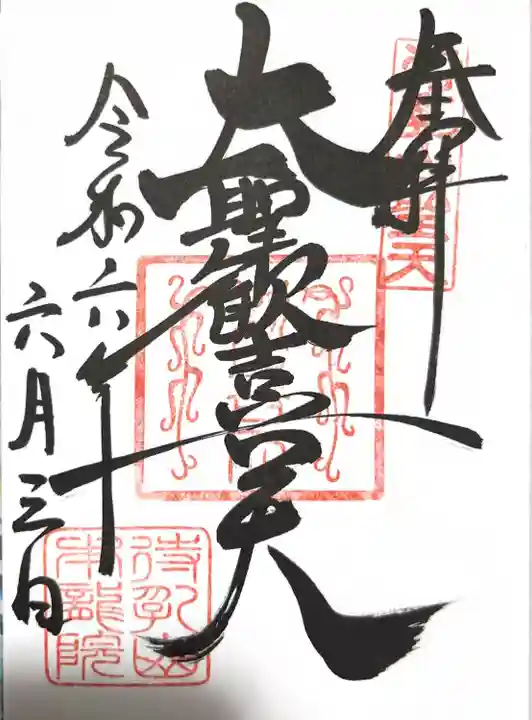 奉拝
大聖歓喜天
令和六年
六月三日
待乳山
本龍院